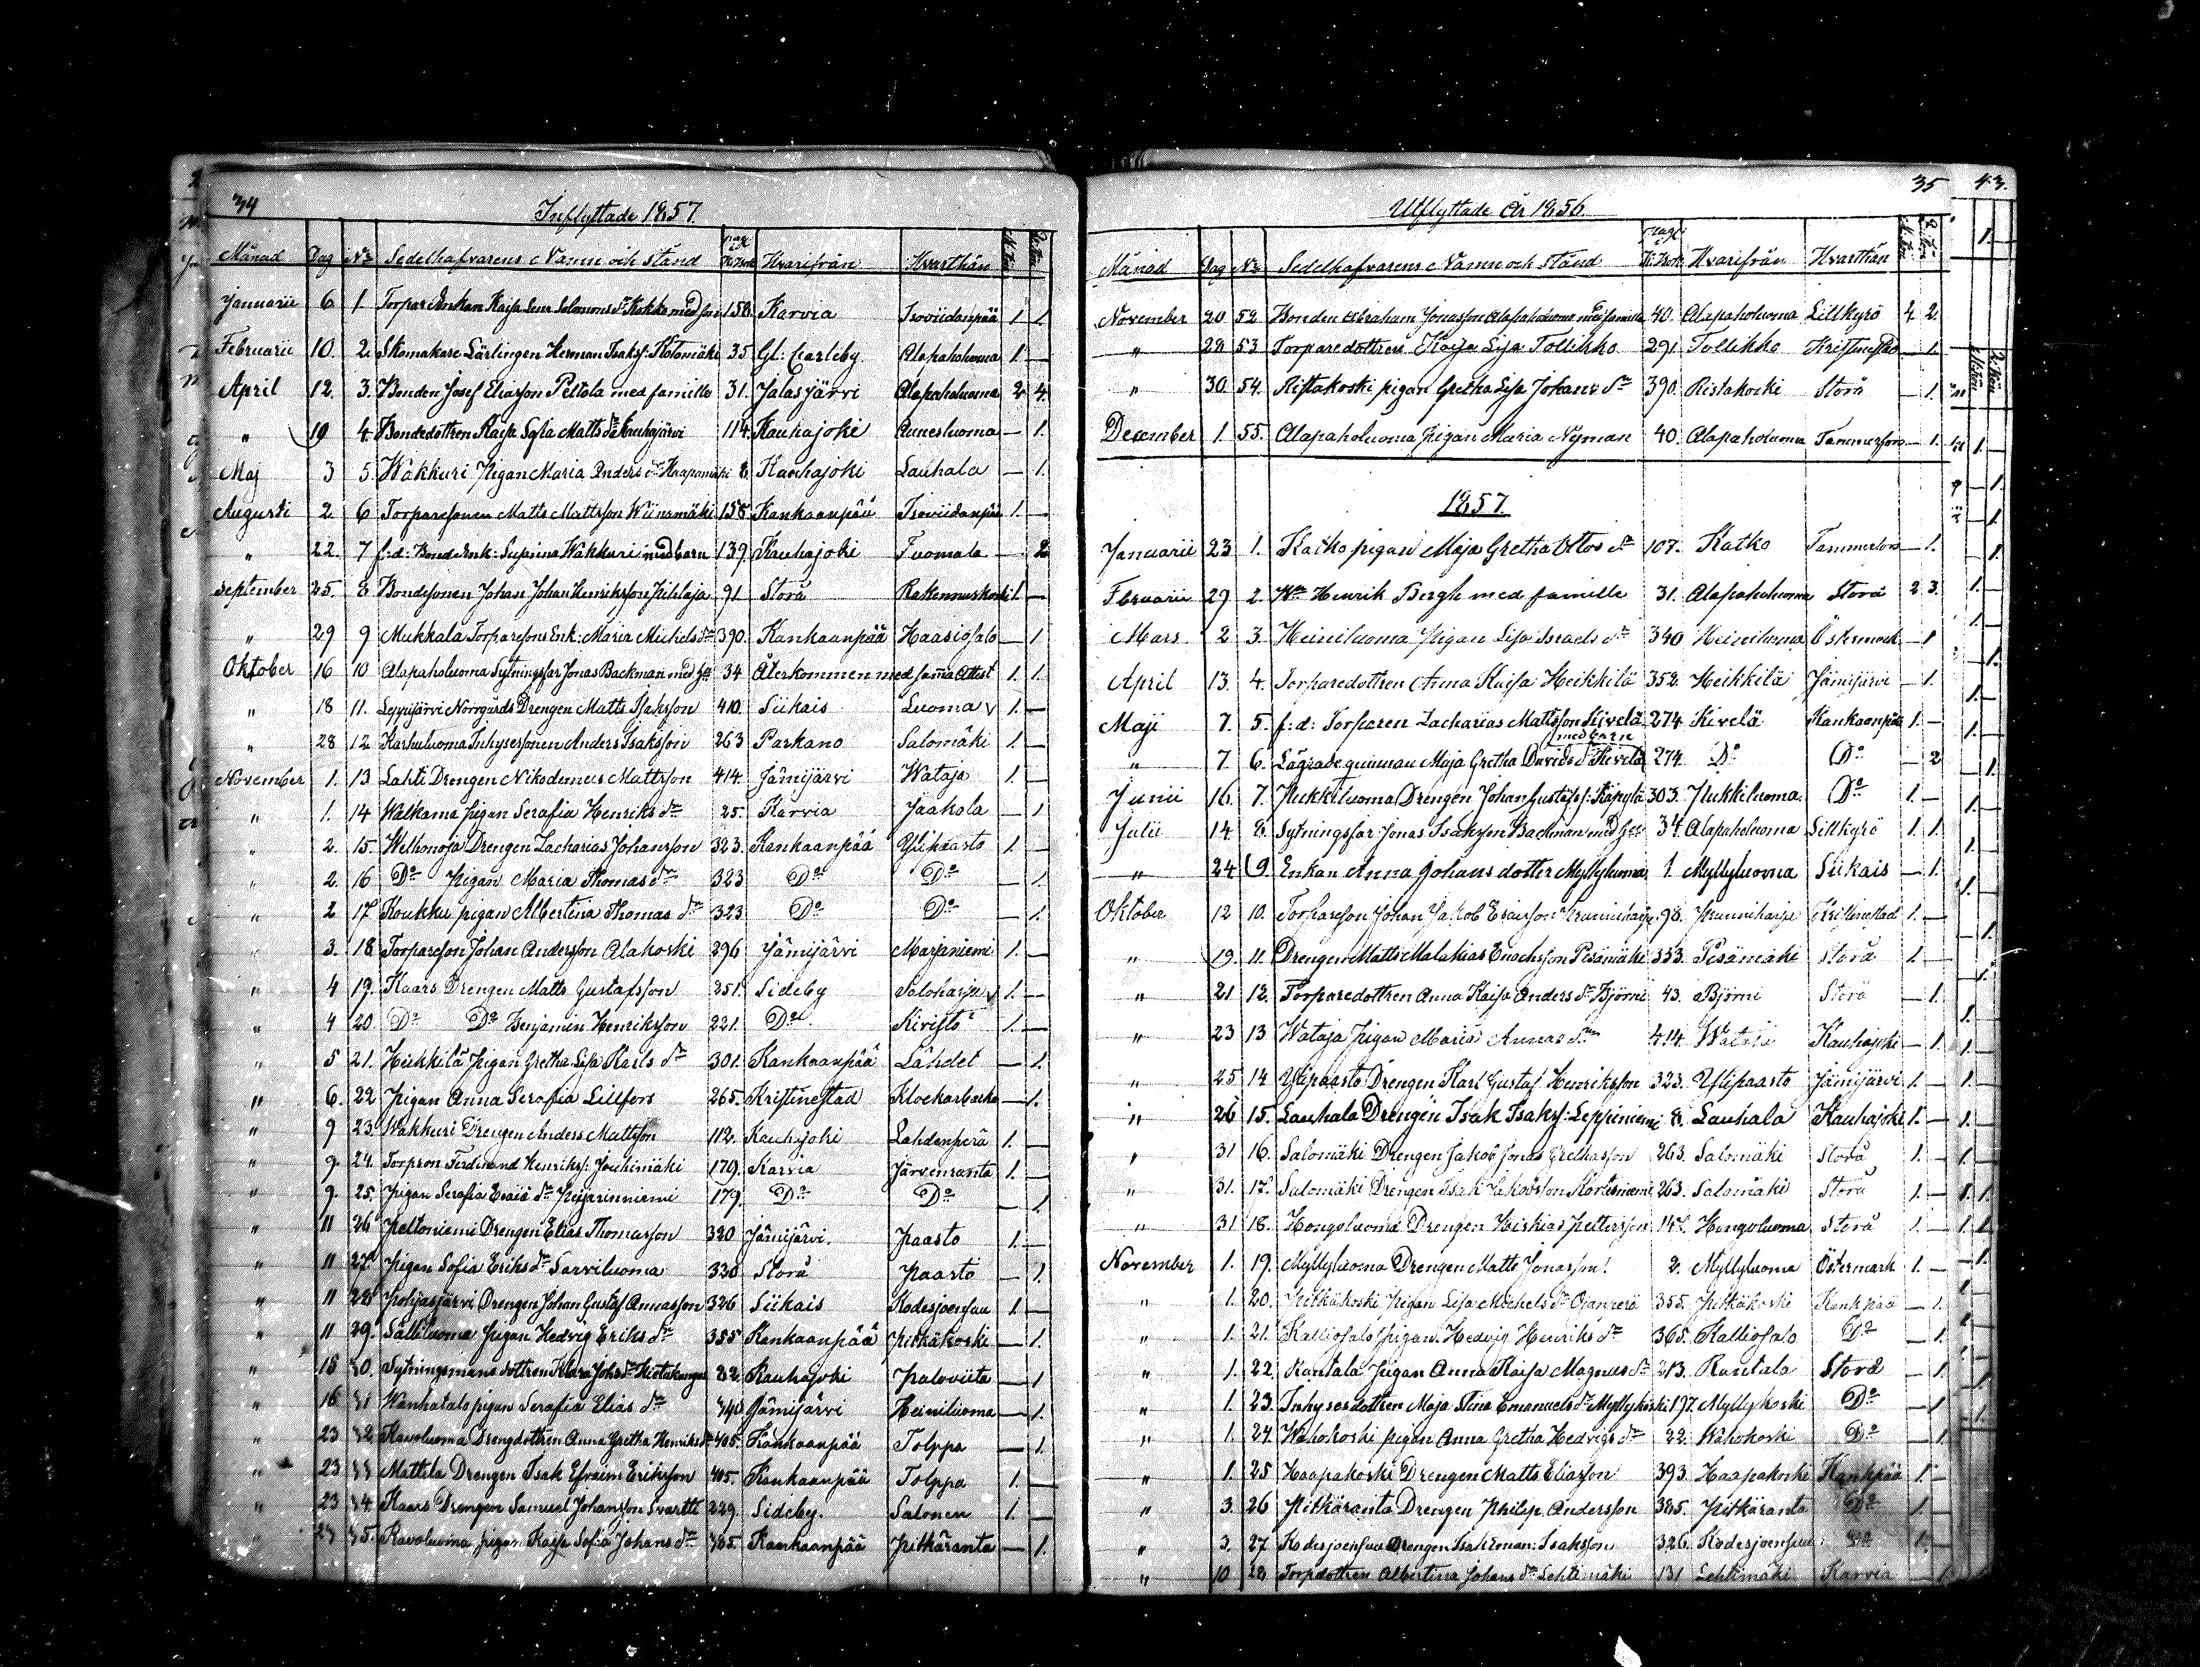 34
Inflyttade 1857.
Månad Dag No Sedelhafvarens Namn och stånd Hvarifrån Hvarthän
Januarii 6 1 Kaisa Lena Salomons dr Kokko med son 158. Karvia Isoviidanpää 1. 1.
Februarii 10. 2. Skomakare Lärlingen Herman Isaksf: 35 Gl: Carleby Alapaholuoma 1. —
April 12. 3. Bonden Josef Eliasson Peltola med famille 31. Jalasjärvi Alapaholuoma 2 4.
" 19 4 Bondedottren Kaisa Sofia Matts dr Kauhajärvi 114. Kauhajoki Aunesluoma — 1.
Maj 3 5 Wakkuri Pigan Maria Anders dr Haapamäki 8. Kauhajoki Lauhala — 1.
Augusti 2 6 Torparesonen Matts Mattsson Wiinamäki 158. Kankaanpää Isoviidanpää 1. —
" 22. 7 f:d: Bond Enk: Susanna Wakkuri med barn 139. Kauhajoki Tuomala — 2
September 25. 8 Bondesonen Johan Johan Henriksson Pihlaja 91 Storå Rakennuskoski 1 —
" 29 9 Mukkala Torparesons Enk: Maria Michels dr 390. Kankaanpää Haasiosalo — 1.
Oktober 16 10 Alapaholuoma Sytningsfar Jonas Backman med 34 Återkommen med samma Attest 1. 1.
" 18 11. Leppijärvi Norrgårds Drengen Matts Isaksson 410. Siikais Luoma v 1. —
" 28 12 Karhuluoma Inhysesonen Anders Isaksson 263 Parkano Salomäki 1. —
November 1. 13 Lahti Drengen Nikodemus Mattsson 414. Jämijärvi Wataja 1. —
" 1. 14 Walkama Pigan Serafia Henriks dr 25. Karvia Jaakola — 1
" 2. 15. Welhonoja Drengen Zacharias Johansson 323. Kankaanpää Ylipaasto 1. —
" 2. 16 Do Pigan Maria Thomas dr 323 Do Do — 1.
" 2 17 Koukku pigan Albertina Thomas dr 323 Do Do — 1.
" 3. 18 Torpareson Johan Andersson Alakoski 296 Jämijärvi Marjaniemi 1. —
" 4 19. Kaars Drengen Matts Gustafsson 251. Sideby Saloharju v 1. —
" 4 20. Do Do Benjamin Henriksson 221. Do Kivistö 1. —
" 5 21. Heikkilä Pigan Gretha Lisa Karls dr 301. Kankaanpää Lähdet — 1.
" 6. 22 Pigan Anna Serafia Lillfors 265. Kristinestad Klockarbacka — 1.
" 9 23. Wakkuri Drengen Anders Mattsson 112. Kauhajoki Lahdenperä 1. —
" 9. 24. Torpson Ferdinand Henriksf: Jouhimäki 179. Karvia Järvenranta 1. —
" 9. 25. Pigan Serafia Esaiæ dr 179. Do Do — 1
" 11 26 Peltoniemi Drengen Elias Thomasson 320 Jämijärvi. Paasto 1. —
" 11 27. Pigan Sofia Eriks dr Sarviluoma 320 Storå Paasto — 1.
" 11 28 Pohjasjärvi Drengen Johan Gustaf Annasson 326 Siikais Kodesjoensuu 1. —
" 11 29. Sälliluoma Pigan Hedvig Eriks dr 355 Kankaanpää Pitkäkoski — 1.
" 18 30. Sytningsmans dottren Klara Johs dr Hietakangas 82. Kauhajoki Paloviita — 1
" 16 31 Wanhatalo pigan Serafia Elias dr 340 Jämijärvi Heiniluoma — 1.
" 23 32 Ravoluoma Drengdottren Anna Gretha Henriks dr 405. Kankaanpää Tolppa — 1.
" 23 33 Mattila Drengen Isak Efraim Eriksson 405. Kankaanpää Tolppa 1. —
" 23 34 Kaars Drengen Samuel Johansson Svartti 229. Sideby. Salonen 1. —
" 23 35. Ravoluoma pigan Kaisa Sofia Johans dr 365. Kankaanpää Pitkäranta — 1.
35 43.
Utflyttade År 1856.
Månad Dag No Sedelhafvarens Namn och stånd Hvarifrån Hvarthän
November 20 52 Bonden Abraham Jonasson Alapaholuoma med famille 40. Alapaholuoma Lillkyrö 4 2.
" 28 53 Torparedottren Kaisa Lisa Tollikko 291 Tollikko Kristinestad — 1.
" 30 54. Ristakoski pigan Gretha Lisa Johans dr 390. Ristakoski Storå — 1.
December 1 55. Alapaholuoma Pigan Maria Nyman 40. Alapaholuoma Tammerfors — 1.
1857.
Januarii 23 1. Katko pigan Maja Gretha Ottos dr 107. Katko Tammerfors — 1.
Februarii 29 2. Henrik Bergh med famille 31. Alapaholuoma Storå 2 3.
Mars 2 3. Heiniluoma Pigan Lisa Israels dr 340 Heiniluoma Östermark — 1
April 13. 4. Torparedottren Anna Kaisa Heikkilä 352. Heikkilä Jämijärvi — 1.
Maji 7. 5. f:d: Torparen Zacharias Mattsson Kivelä 274 Kivelä Kankaanpää 1. —
med barn
" 7 6. Lägrade quinnan Maja Gretha Davids dr Kivelä 274. Do Do — 2
Junii 16. 7. Pukkiluoma Drengen Johan Gustafsf: Käpylä 303. Pukkiluoma. Do 1. —
Julii 14 8. Sytningsfar Jonas Isaksson Backman med 34. Alapaholuoma Lillkyrö 1. 1.
" 24 9 Enkan Anna Johans dotter Myllyluoma 1 Myllyluoma Siikais — 1.
Oktober 12 10. Torpareson Johan Jakob Esaiæson 98. Kristinestad 1. —
" 19. 11. Drengen Matts Malakias Enochsson Pesämäki 353. Pesämäki Storå 1. —
" 21 12. Torparedottren Anna Kaisa Anders dr Björni 43. Björni Storå — 1.
" 23 13 Wataja Pigan Maria Annas dr 414. Wataja Kauhajoki — 1.
" 25 14 Ylipaasto Drengen Karl Gustaf Henriksson 323. Ylipaasto Jämijärvi 1. —
" 26 15. Lauhala Drengen Isak Isaksf: Leppiniemi 8. Lauhala Kauhajoki 1. —
" 31 16. Salomäki Drengen Jakob Jonas Grethasson 263. Salomäki Storå 1. —
" 31. 17. Salomäki Drengen Isak Jakobsson Kortesniemi 263. Salomäki Storå 1. —
" 31 18. Hongoluoma Drengen Heskias Pettersson 147. Hongoluoma Storå 1. —
November 1. 19. Myllyluoma Drengen Matts Jonasson. 2. Myllyluoma Östermark 1. —
" 1. 20. Pitkäkoski Pigan Lisa Michels dr Ojanperä 355. Pitkäkoski Kankpää — 1.
" 1. 21. Kalliosalo Pigan Hedvig Henriks dr 365. Kalliosalo Do — 1.
" 1. 22. Rantala Pigan Anna Kaisa Magnus dr 213. Rantala Storå — 1
" 1. 23. Inhysesdottren Maja Stina Emanuels dr Myllykoski 197. Myllykoski Do — 1
" 1. 24. Wahokoski pigan Anna Gretha Hedvigs dr 22. Wahokoski Do — 1.
" 1. 25 Haapakoski Drengen Matts Eliasson 393. Haapakoski Kankpää 1. —
" 3. 26 Pitkäranta Drengen Philip Andersson 365. Pitkäranta Do 1. —
" 3. 27. Kodesjoensuu Drengen Isak Eman: Isaksson 326. Kodesjoensuu Do 1. —
" 10 28 Torpdottren Albertina Johans dr Lehtimäki 131 Lehtimäki Karvia — 1.